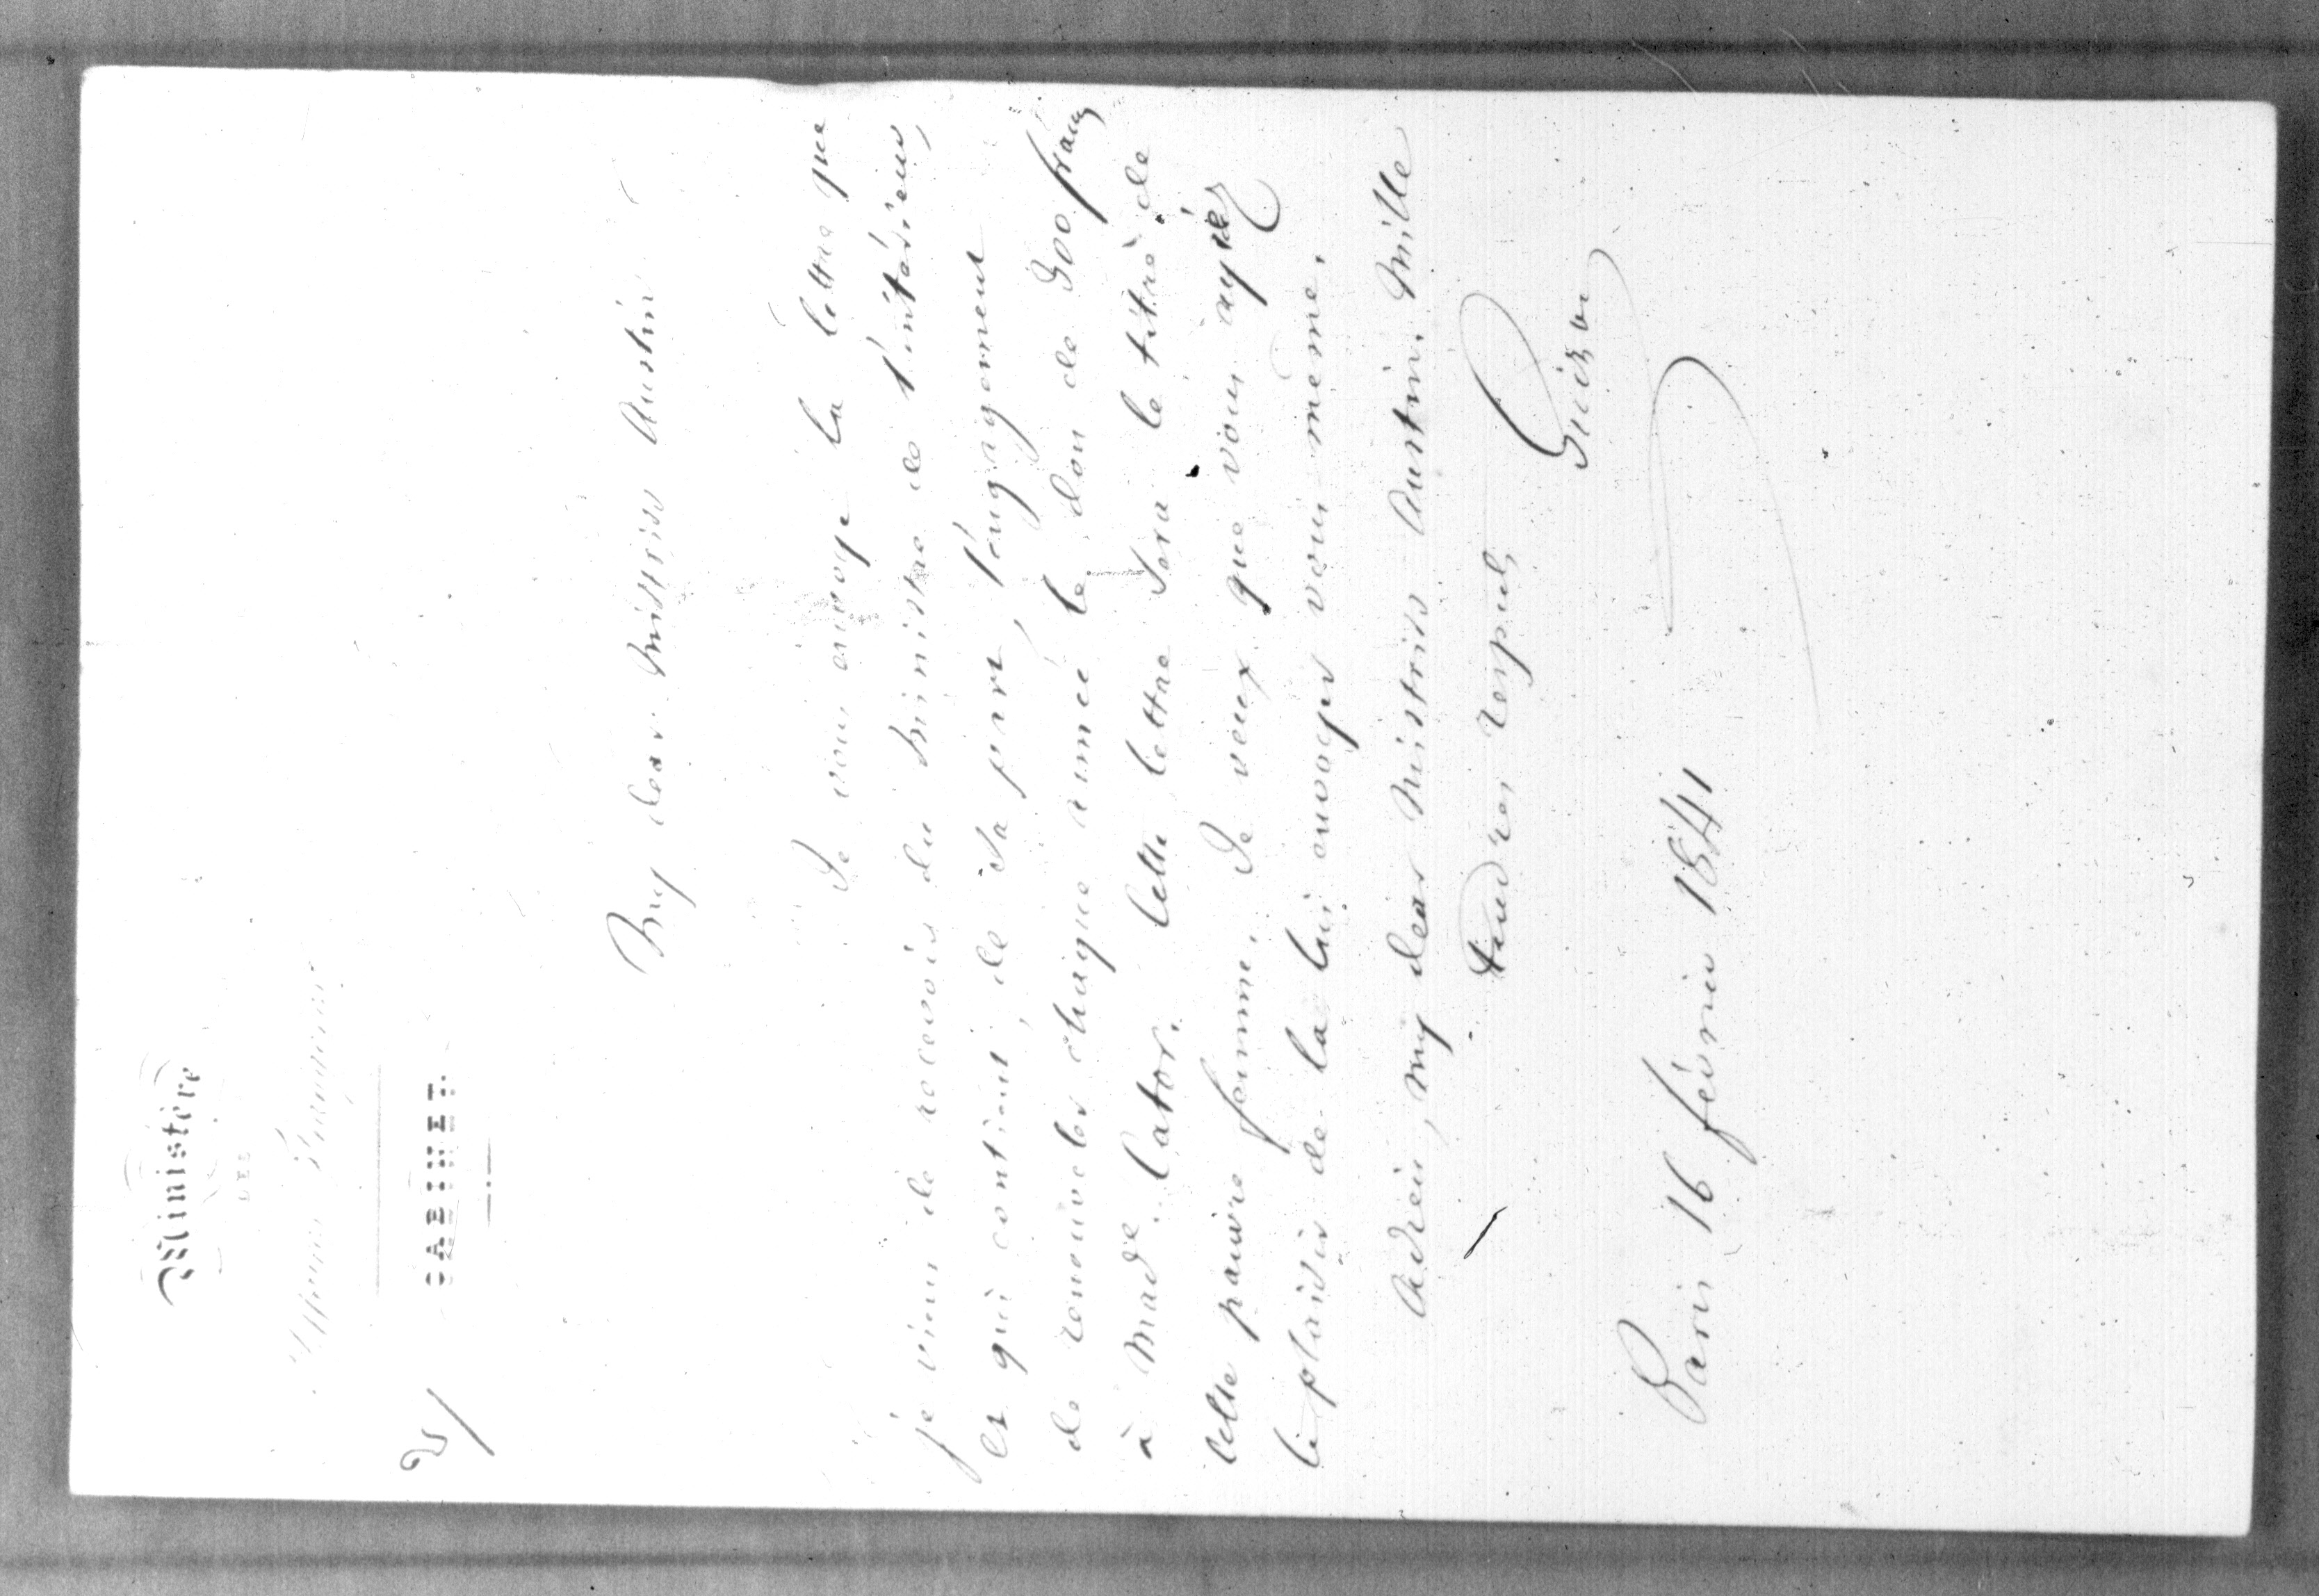 Ministère
DES
Affaires Etrangères
CABINET.
My dear Mistriss Austin
Je vous envoye la lettre que
je viens de recevoir du ministre de l'intérieur,
et qui contient, de sa part, l'engagement
de renouveler chaque année le don de 300 francs
à Made. Cator. Cette lettre sera le titre de
cette pauvre femme. Je veux que vous ayiez
le plaisir de la lui envoyer vous même.
Adieu, my dear Mistriss Austin. Mille
tendres respects
Guizot
Paris 16 février 1841